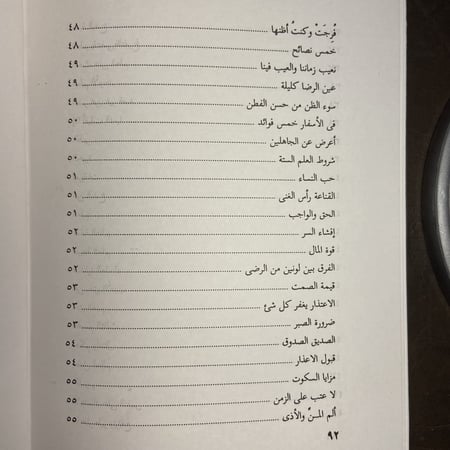 فُرِجَتْ وكنتُ أظنها ٤٨
خمس نصائح ٤٨
نعيب زماننا والعيب فينا ٤٩
عين الرضا كليلة ٤٩
سوء الظن من حسن الفطن ٤٩
في الأسفار خمس فوائد ٥٠
أعرض عن الجاهلين ٥٠
شروط العلم الستة ٥٠
حب النساء ٥١
القناعة رأس الغنى ٥١
الحق والواجب ٥١
إفشاء السر ٥٢
قوة المال ٥٢
الفرق بين لونين من الرضى ٥٢
قيمة الصمت ٥٣
الاعتذار يغفر كل شئ ٥٣
ضرورة الصبر ٥٣
الصديق الصدوق ٥٤
قبول الاعذار ٥٤
مزايا السكوت ٥٥
لا عتب على الزمن ٥٥
ألم المنِّ والأذى ٥٥
٩٢